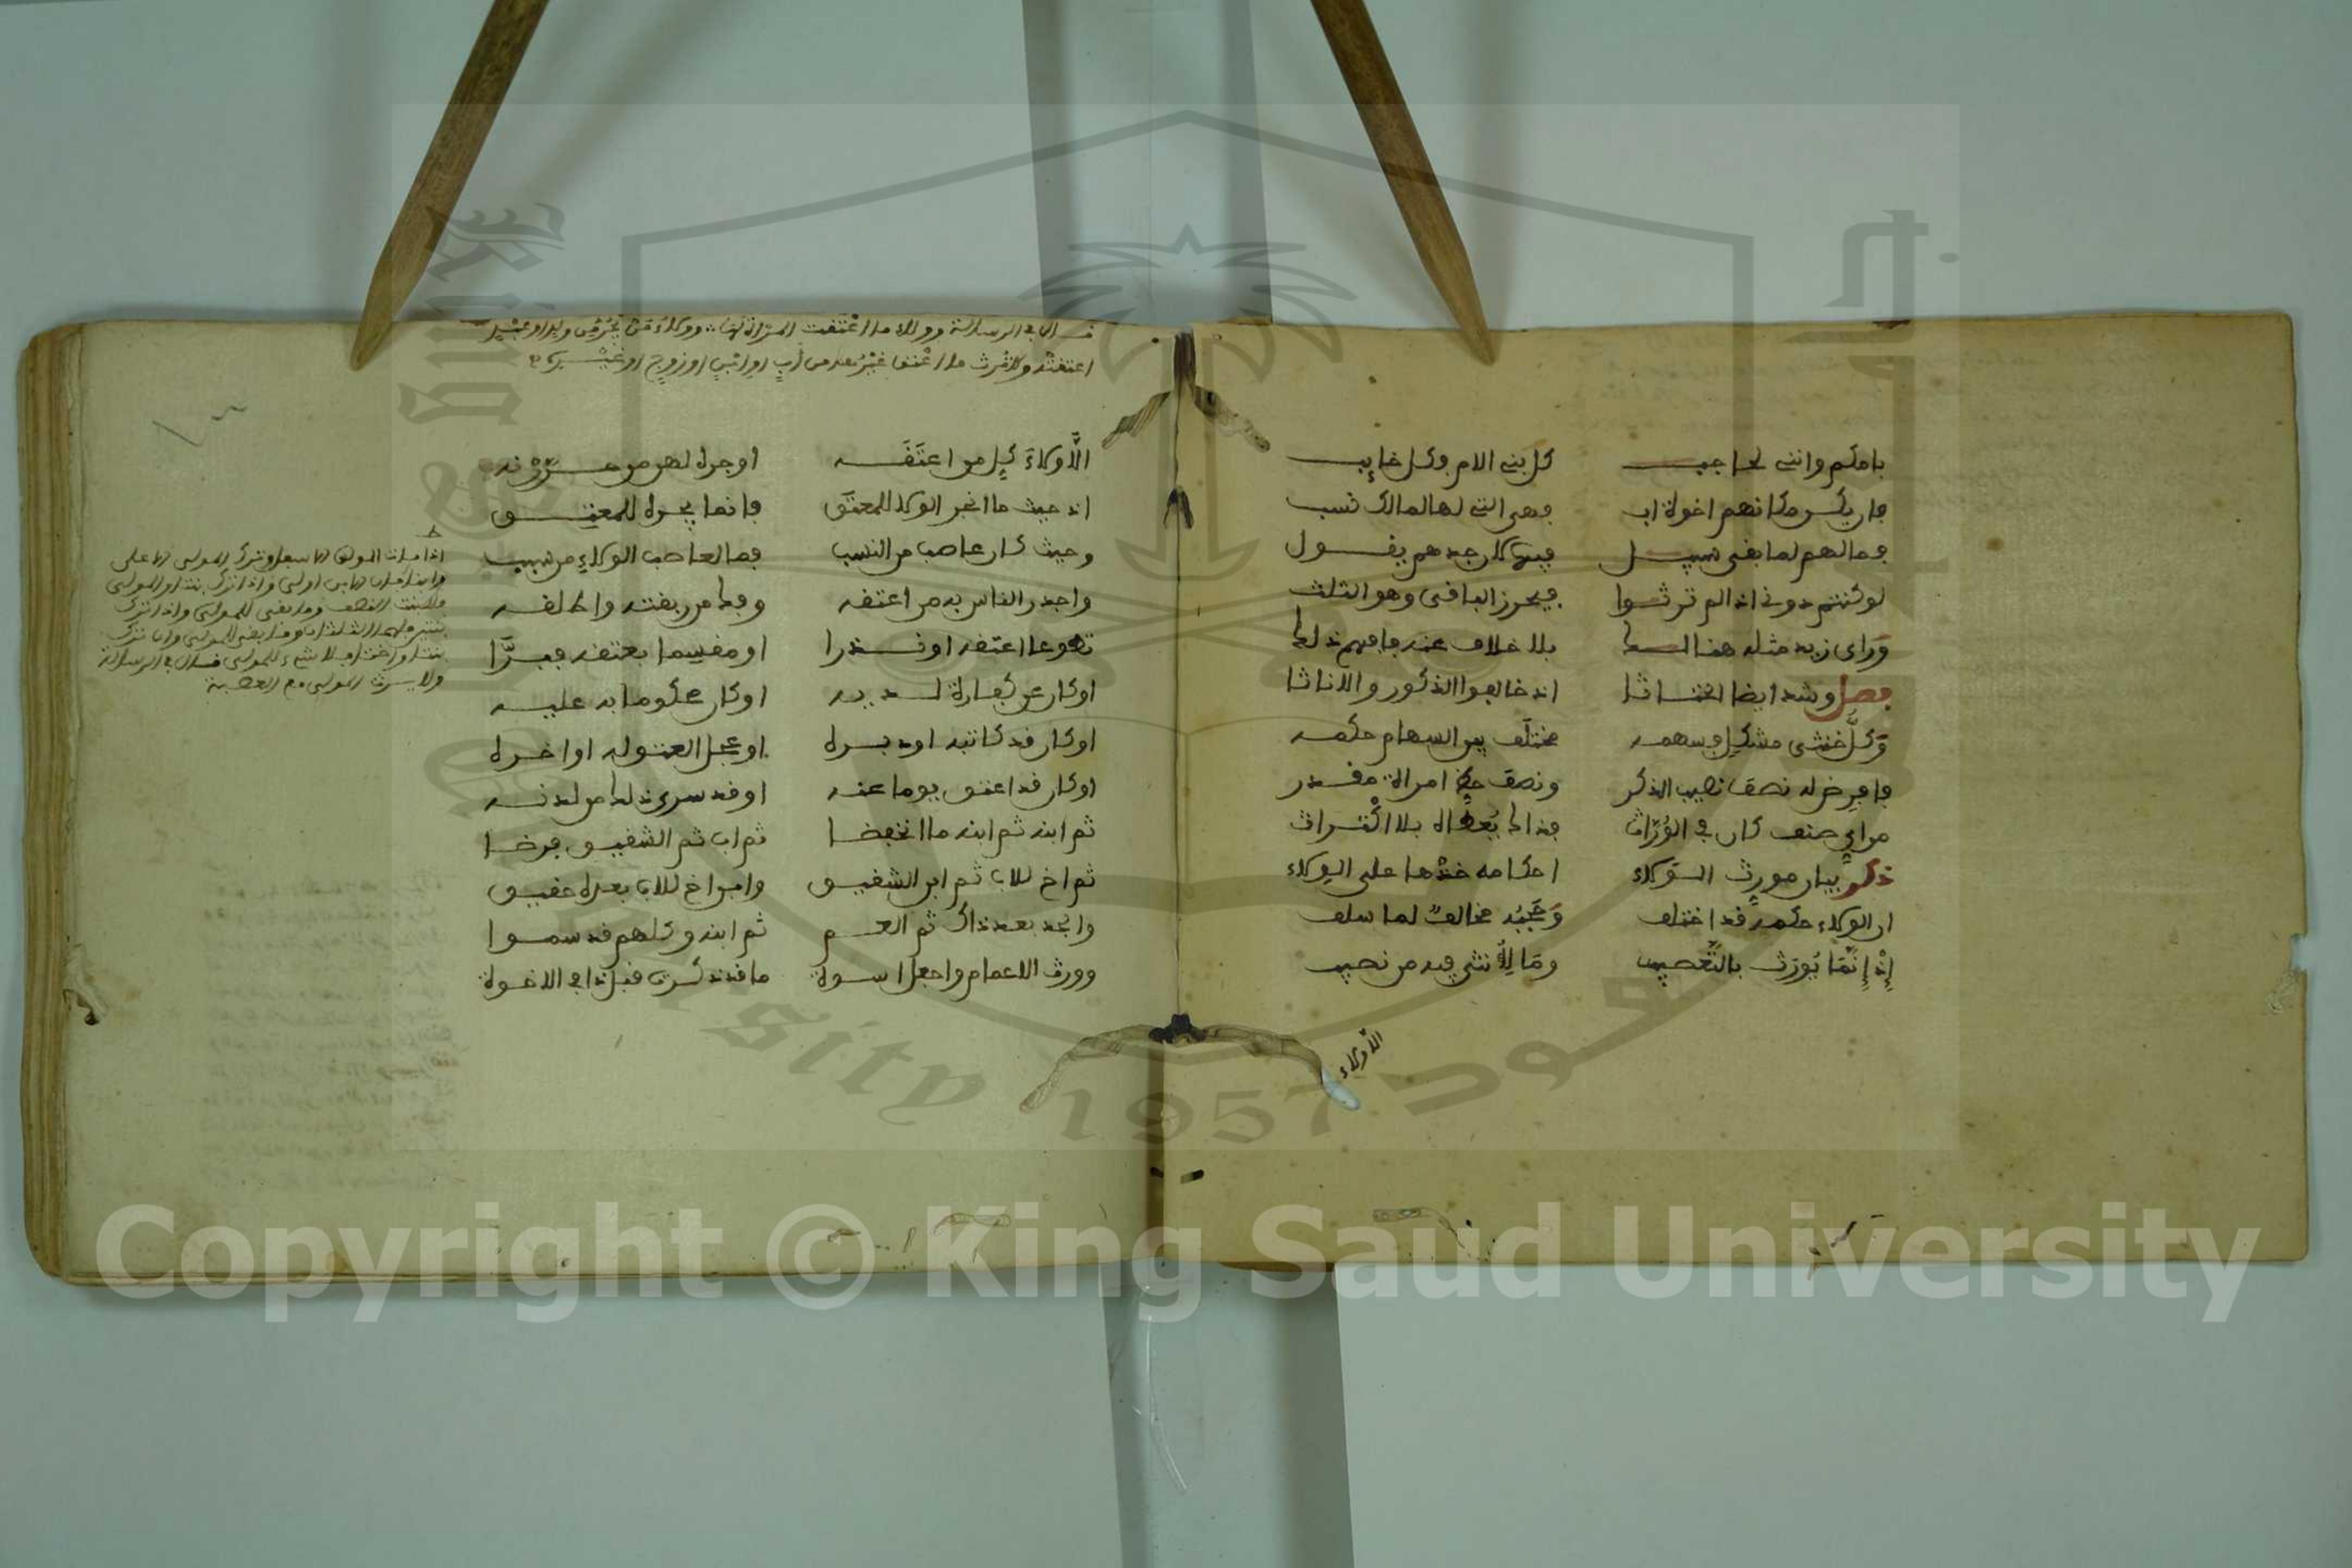 بامكم وانتى لحاجب كل بنى الام وكل خايب
فان يكن مكانهم اخوة اب فهى التى لها لمالك نسب
فما لهم لما بقى سبيل فيها كان جدهم يقول
لو كنتم دونى اذا لم ترثوا فيحرز الباقى وهو الثلث
وراى زيد مثله هذا السدا بلا خلاف عنه فافهم ذلك
فصل وشد ايضا الخناثا اذ خالفوا الذكور والاناثا
وكل خنثى مشكل فسهمه مختلف بين السهام حكمه
فافرض له نصف نصيب الذكر ونصف حظ امراة مقدر
من اي صنف كان في الوراث فذاك يعطاه بلا اكتراث
ذكر بيان مورث الولاء احكامه خذها على الولاء
ان الولاء حكمه قد اختلف وحجبه مخالف لما سلف
إذ إنما يورث بالتعصيب وما لانثى فيه من نصيب
الا ولاء
قال في الرسالة وولاء ما اعتقت المراة لها وولاء من يجر من ولد او عبد
اعتقته ولا ترث ما اعتق غيرها من أب او ابن او زوج او غيره
الا ولاء كل من اعتقه او جره لهن من
اذ حيث ما انجر الولا للمعتق فانما يجره للمعتق
وحيث كان عاصب من النسب فما لعاصب الولاء من سبب
واجدر الناس به من اعتقه وفك من ربقته واطلقه
تطوعا اعتقه او نذرا او مقسما بعتقه فبرا
او كان عن كفارة لديه او كان محكوما به عليه
او كان قد كاتبه او دبره او عجل العتق له او اخره
او كان قد اعتق يوما عنه او قد سرى ذلك من لدنه
ثم ابنه ثم ابنه ما انخفضا ثم اب ثم الشقيق فرضا
ثم اخ للاب ثم ابن الشقيق وابن اخ للاب بعده حقيق
والجد بعد ذاك ثم العم ثم ابنه وكلهم قد سموا
وورث الاعمام واجعل اسوة ما قد ذكرت قبل ذا في الاخوة
اذا مات المولى الاسفل وترك المولى الاعلى
وابنا فان الابن اولى واذا ترك بنتا والمولى
فللبنت النصف وما بقى للمولى واذا ترك
بنتين فلهما الثلثان وما بقى للمولى وان ترك
بنتا واختا فلا شيء للمولى قال في الرسالة
ولا يرث المولى مع العصبة
Copyright © King Saud University
1957